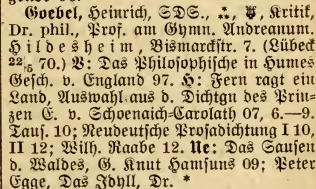 Goebel, Heinrich, SDS., ⁂, Kritik,
Dr. phil., Prof. am Gymn. Andreanum.
Hildesheim, Bismarckstr. 7. (Lübeck
22/5 70.) V: Das Philosophische in Humes
Gesch. v. England 97. H: Fern ragt ein
Land, Auswahl aus d. Dichtgn des Prin-
zen E. v. Schoenaich-Carolath 07, 6.—9.
Taus. 10; Neudeutsche Prosadichtung I 10,
II 12; Wilh. Raabe 12. Ue: Das Sausen
d. Waldes, G. Knut Hamsuns 09; Peter
Egge, Das Idyll, Dr. *